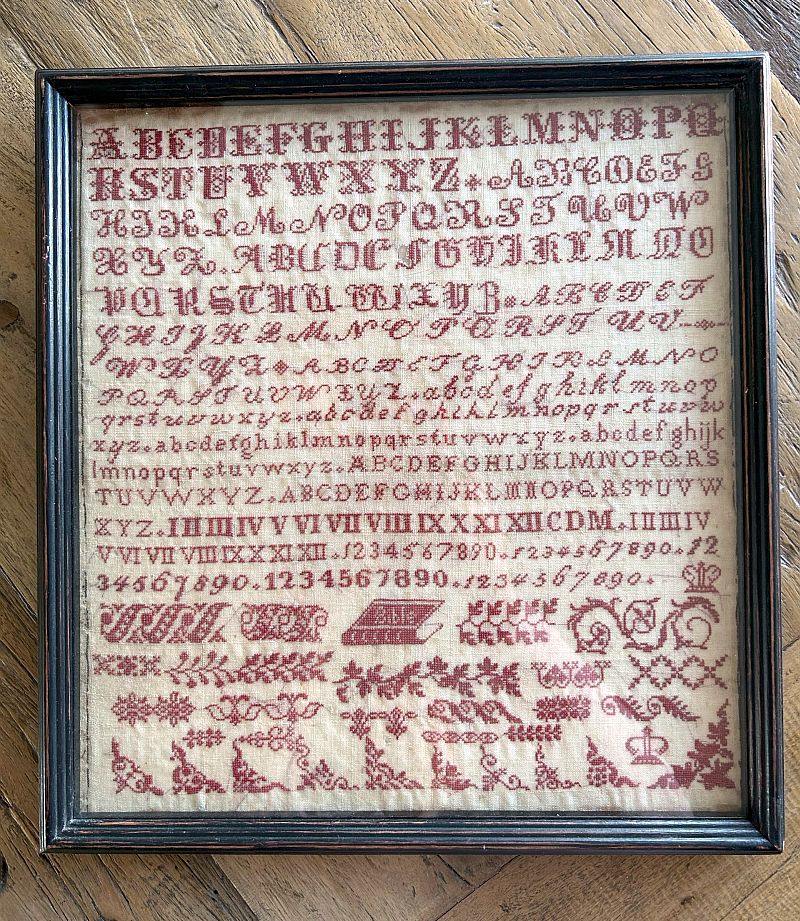 ABCDEFGHIJKLMNOPQ
RSTUVWXYZ * ABCDEFG
HIKLMNOPQRSTUVW
XYZ. ABCDEFGHIKLMNO
PQRSTUVWXYZ * ABCDEF
GHIJKLMNOPQRSTUV
WXYZ * ABCDEFGHIKLMNO
PQRSTUVWXYZ. abcdefghiklmnop
qrstuvwxyz. abcdefghiklmnopqrstuvw
xyz. abcdefghiklmnopqrstuvwxyz. abcdefghijk
lmnopqrstuvwxyz. ABCDEFGHIJKLMNOPQRS
TUVWXYZ. ABCDEFGHIJKLMNOPQRSTUVW
XYZ. I II III IV V VI VII VIII IX X XI XII C D M. I II III IV
V VI VII VIII IX X XI XII. 1234567890. 1234567890. 12
34567890. 1234567890. 1234567890.